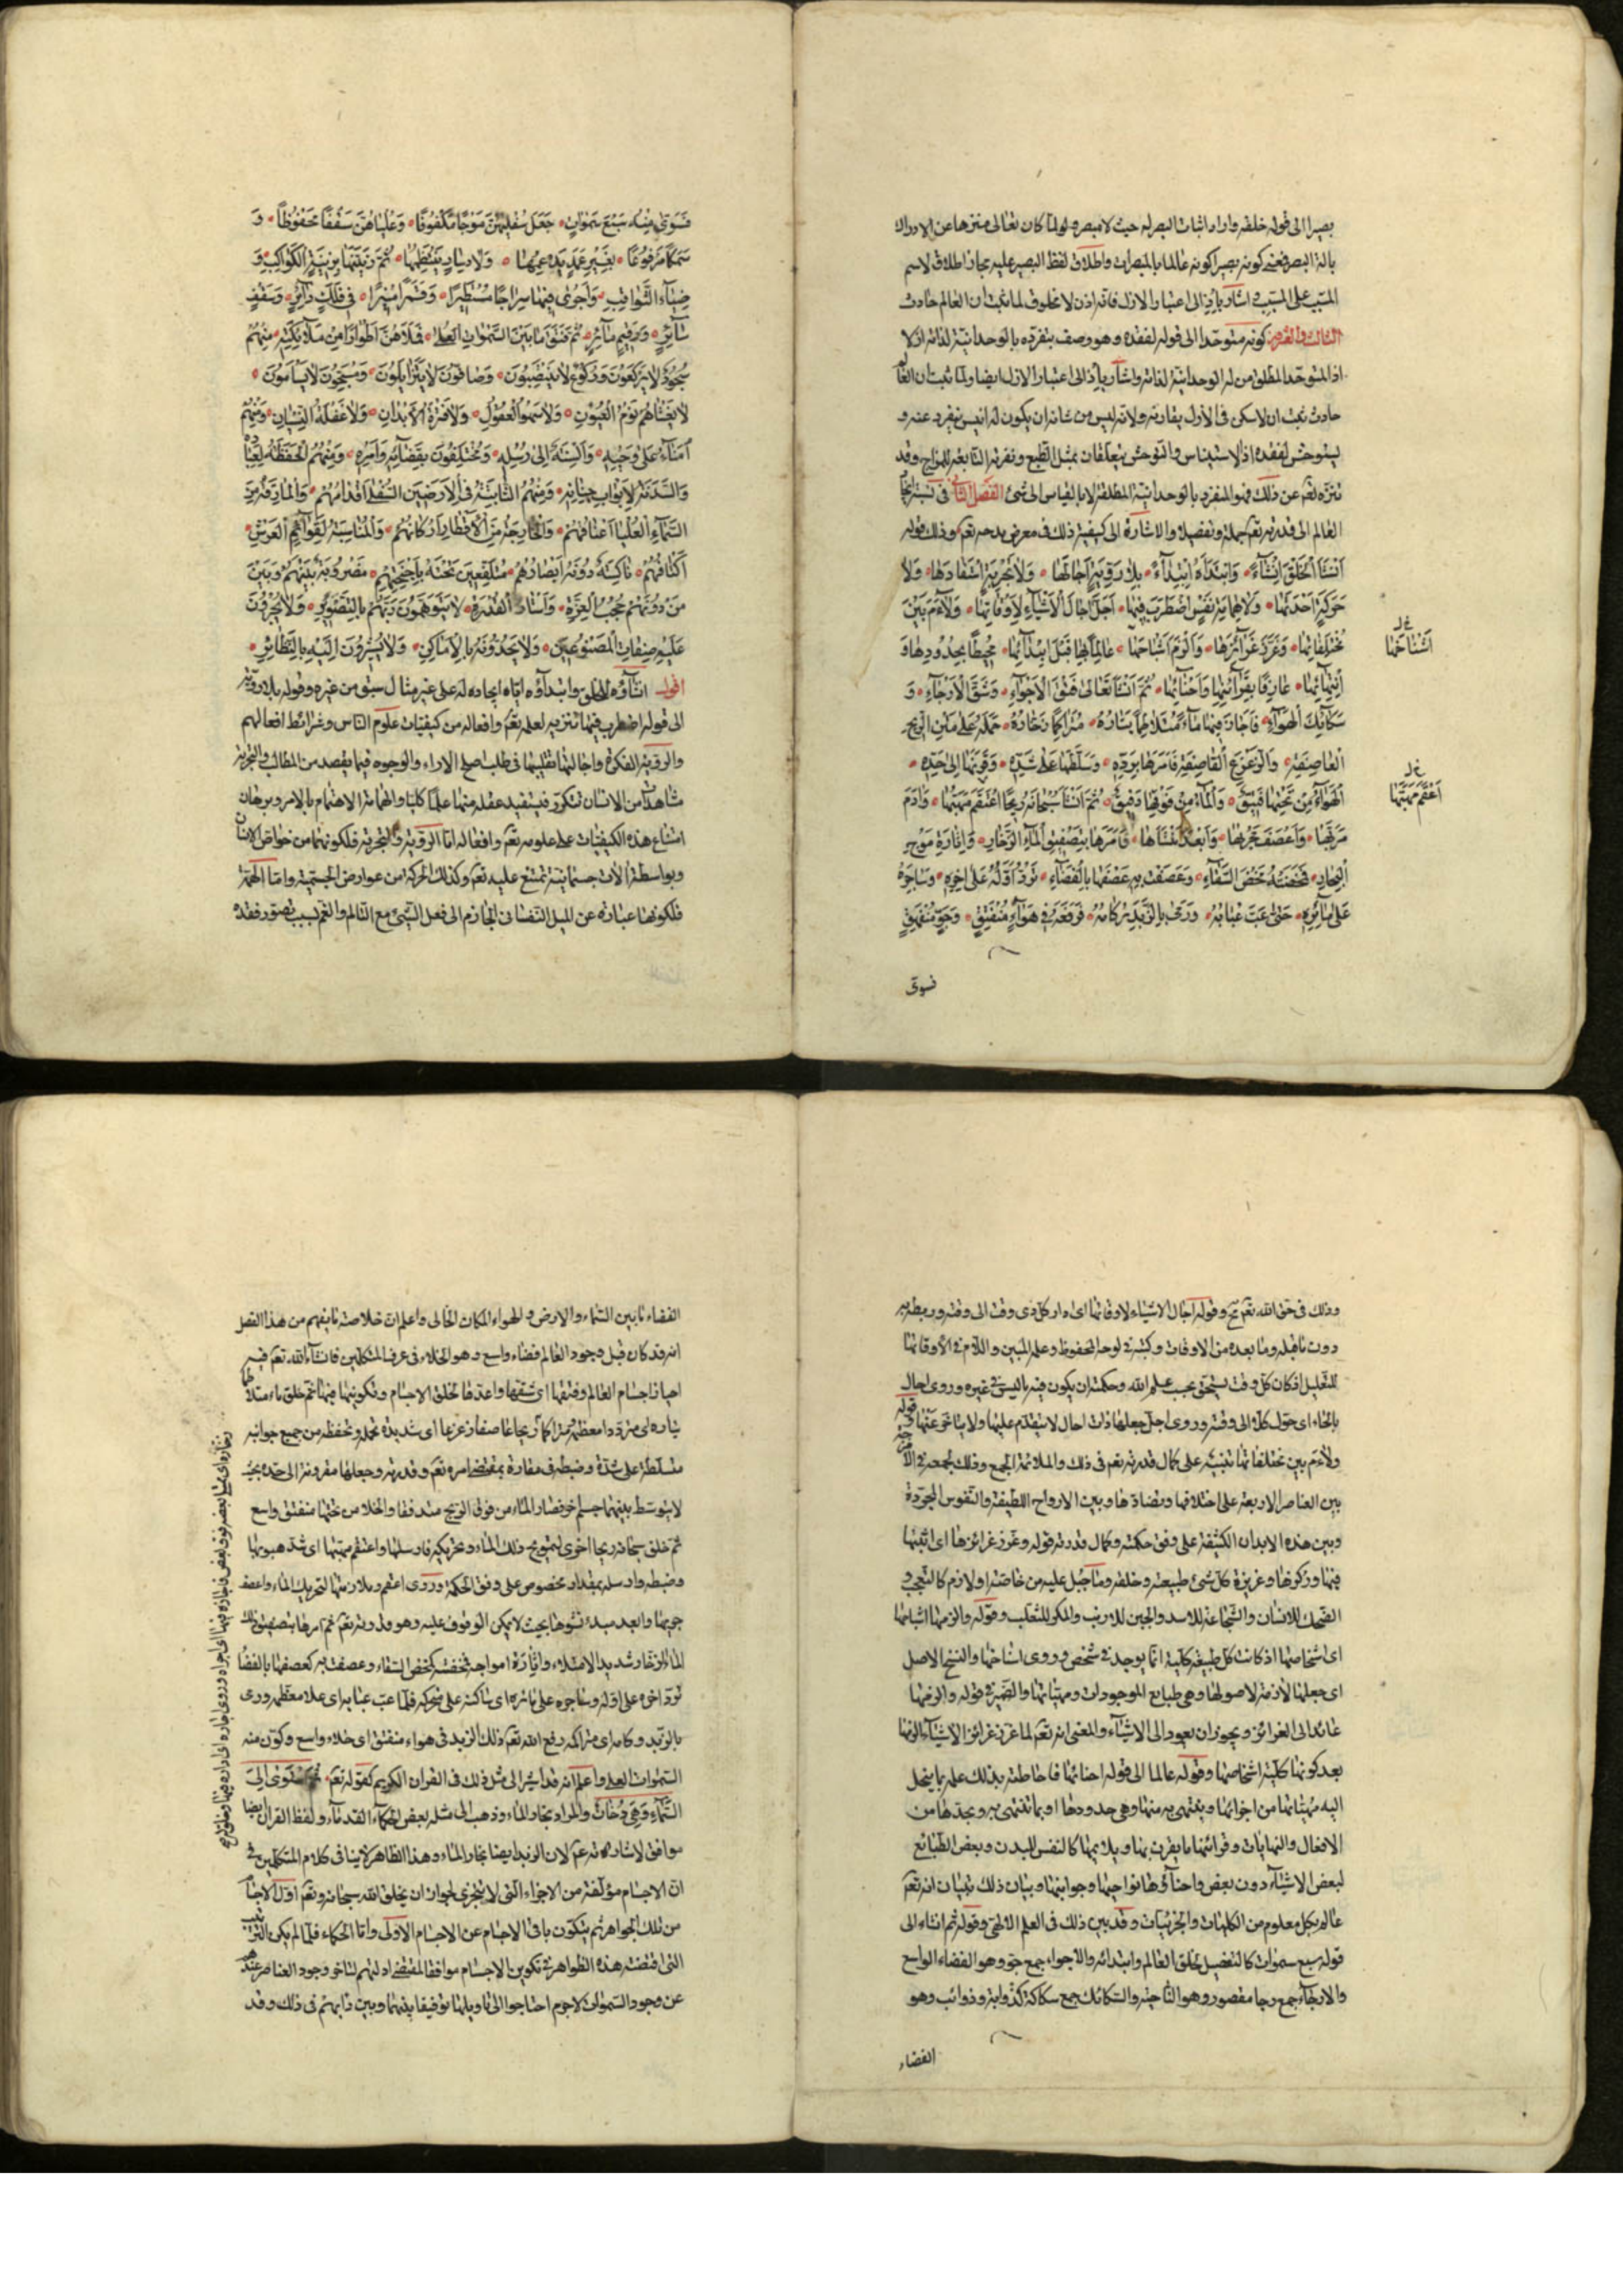 بصيرا الى قوله خلقه واراد اثبات البصر له حيث لا مبصر ولما كان تعالى منزها عن الادراك
بالة البصر فمعنى كونه بصيرا كونه عالما بالمبصرات واطلاق لفظ البصير عليه مجاز اطلاق لاسم
المسبب على السبب واشار باذ الى اعتبار الازل فانه اذن لا مخلوق لما ثبت ان العالم حادث
الثالث والعشر كونه متوحدا الى قوله لفقده وهو وصف بتفرده بالوحدانية لذاته ازلا
اذ المتوحد المطلق من له الوحدانية لذاته واشار باذ الى اعتبار الازل ايضا ولما ثبت ان العالم
حادث ثبت ان لا سكن فى الازل يقارنه ولانه ليس من شانه ان يكون له انيس ينفرد عنه و
يستوحش لفقده اذ الاستيناس والتوحش يتعلقان بميل الطبع ونفرته التابعة للمزاج وقد
تنزه تعم عن ذلك فهو المنفرد بالوحدانية المطلقة لا بالقياس الى شئ الفصل الثانى فى نسبة ايجاد
العالم الى قدرته تعم جملة وتفصيلا والاشارة الى كيفية ذلك فى معرض مدحه تعم وذلك قوله
اَنْشَأَ الْخَلْقَ اِنْشَاءً وَابْتَدَأَهُ ابْتِدَاءً بِلَا رَوِيَّةٍ اَجَالَهَا وَلَا تَجْرِبَةٍ اسْتَفَادَهَا وَلَا
حَرَكَةٍ اَحْدَثَهَا وَلَا هَمَامَةِ نَفْسٍ اضْطَرَبَ فِيهَا اَجَّلَ اَجَالَ الْاَشْيَاءِ لِاَوْقَاتِهَا وَلَاءَمَ بَيْنَ
مُخْتَلِفَاتِهَا وَغَرَّزَ غَرَائِزَهَا وَاَلْزَمَ اَشْبَاحَهَا عَالِمًا بِهَا قَبْلَ ابْتِدَائِهَا مُحِيطًا بِحُدُودِهَا وَ
اَسْنَاخَهَا
اَنْتِهَائِهَا عَارِفًا بِقَرَائِنِهَا وَاَحْنَائِهَا ثُمَّ اَنْشَأَ تَعَالَى فَتْقَ الْاَجْوَاءِ وَشَقَّ الْاَرْجَاءِ وَ
سَكَائِكَ الْهَوَاءِ فَاَجَازَ فِيهَا مَاءً مُتَلَاطِمًا تَيَّارُهُ مُتَرَاكِمًا زَخَّارُهُ حَمَلَهُ عَلَى مَتْنِ الرِّيحِ
الْعَاصِفَةِ وَالزَّعْزَعِ الْقَاصِفَةِ فَاَمَرَهَا بِرَدِّهِ وَسَلَّطَهَا عَلَى شَدِّهِ وَقَرَنَهَا اِلَى حَدِّهِ
الْهَوَاءُ مِنْ تَحْتِهَا فَتِيقٌ وَالْمَاءُ مِنْ فَوْقِهَا دَفِيقٌ ثُمَّ اَنْشَأَ سُبْحَانَهُ رِيحًا اعْتَقَمَ مَهَبَّهَا وَاَدَامَ
اَعْقَمَ مَهَبَّهَا
مُرَبَّهَا وَاَعْصَفَ مَجْرَاهَا وَاَبْعَدَ مَنْشَاهَا فَاَمَرَهَا بِتَصْفِيقِ الْمَاءِ الزَّخَّارِ وَاِثَارَةِ مَوْجِ
الْبِحَارِ فَمَخَضَتْهُ مَخْضَ السِّقَاءِ وَعَصَفَتْ بِهِ عَصْفَهَا بِالْفَضَاءِ تَرُدُّ اَوَّلَهُ عَلَى اٰخِرِهِ وَسَاجِيَهُ
عَلَى مَائِرِهِ حَتَّى عَبَّ عُبَابُهُ وَرَمَى بِالزَّبَدِ رُكَامُهُ فَرَفَعَهُ فِى هَوَاءٍ مُنْفَتِقٍ وَجَوٍّ مُنْفَهِقٍ
فسوى
فَسَوَّى مِنْهُ سَبْعَ سَمٰوَاتٍ جَعَلَ سُفْلَيهُنَّ مَوْجًا مَكْفُوفًا وَعُلْيَاهُنَّ سَقْفًا مَحْفُوظًا وَ
سَمْكًا مَرْفُوعًا بِغَيْرِ عَمَدٍ يَدْعَمُهَا وَلَا دِسَارٍ يَنْتَظِمُهَا ثُمَّ زَيَّنَهَا بِزِينَةِ الْكَوَاكِبِ وَ
ضِيَاءِ الثَّوَاقِبِ وَاَجْرَى فِيهَا سِرَاجًا مُسْتَطِيرًا وَقَمَرًا مُنِيرًا فِى فَلَكٍ دَائِرٍ وَسَقْفٍ
سَائِرٍ وَرَقِيمٍ مَائِرٍ ثُمَّ فَتَقَ مَا بَيْنَ السَّمٰوَاتِ الْعُلَى فَمَلَأَهُنَّ اَطْوَارًا مِنْ مَلَائِكَتِهِ مِنْهُمْ
سُجُودٌ لَا يَرْكَعُونَ وَرُكُوعٌ لَا يَنْتَصِبُونَ وَصَافُّونَ لَا يَتَزَايَلُونَ وَمُسَبِّحُونَ لَا يَسْأَمُونَ
لَا يَغْشَاهُمْ نَوْمُ الْعُيُونِ وَلَا سَهْوُ الْعُقُولِ وَلَا فَتْرَةُ الْاَبْدَانِ وَلَا غَفْلَةُ النِّسْيَانِ وَمِنْهُمْ
اُمَنَاءُ عَلَى وَحْيِهِ وَاَلْسِنَةٌ اِلَى رُسُلِهِ وَمُخْتَلِفُونَ بِقَضَائِهِ وَاَمْرِهِ وَمِنْهُمُ الْحَفَظَةُ لِعِبَادِهِ
وَالسَّدَنَةُ لِاَبْوَابِ جِنَانِهِ وَمِنْهُمُ الثَّابِتَةُ فِى الْاَرَضِينَ السُّفْلَى اَقْدَامُهُمْ وَالْمَارِقَةُ مِنَ
السَّمَاءِ الْعُلْيَا اَعْنَاقُهُمْ وَالْخَارِجَةُ مِنَ الْاَقْطَارِ اَرْكَانُهُمْ وَالْمُنَاسِبَةُ لِقَوَائِمِ الْعَرْشِ
اَكْتَافُهُمْ نَاكِسَةٌ دُونَهُ اَبْصَارُهُمْ مُتَلَفِّعِينَ تَحْتَهُ بِاَجْنِحَتِهِمْ مَضْرُوبَةٌ بَيْنَهُمْ وَبَيْنَ
مَنْ دُونَهُمْ حُجُبُ الْعِزَّةِ وَاَسْتَارُ الْقُدْرَةِ لَا يَتَوَهَّمُونَ رَبَّهُمْ بِالتَّصْوِيرِ وَلَا يُجْرُونَ
عَلَيْهِ صِفَاتِ الْمَصْنُوعِينَ وَلَا يَحُدُّونَهُ بِالْاَمَاكِنِ وَلَا يُشِيرُونَ اِلَيْهِ بِالنَّظَائِرِ
اقول انشاؤه للخلق وابتداؤه اياه ايجاده له على غير مثال سبق من غيره وقوله بلا روية
الى قوله اضطرب فيها تنزيه لعلمه تعم وافعاله من كيفيات علوم الناس وشرائط افعالهم
والروية الفكرة واجالتها تقليبها فى طلب اصلح الاراء والوجوه فيما يقصد من المطالب والتجربة
مشاهدات من الانسان تتكرر فيستفيد عقله منها علما كليا والهمامة الاهتمام بالامر وبرهان
امتناع هذه الكيفيات على علومه تعم وافعاله اما الروية والتجربة فلكونهما من خواص الانسان
وبواسطة الات جسمانية تمتنع عليه تعم وكذلك الحركة من عوارض الجسمية واما الهمة
فلكونها عبارة عن الميل النفسانى الجازم الى فعل الشئ مع التالم والغم بسبب تصور فقده
وذلك فى حق الله تعم مح وقوله اجال الاشياء لاوقاتها اى ادار كل ذى وقت الى وقته وربطه به
دون ما قبله وما بعده من الاوقات وكتبه فى لوحه المحفوظ وعلمه المبين واللام فى لاوقاتها
للتعليل اذ كان كل وقت يستحق بحسب علم الله وحكمته ان يكون فيه ما ليس فى غيره وروى احال
بالحاء اى حول كلا الى وقته وروى اجل جعلها ذات اجال لا يتقدم عليها ولا يتاخر عنها وقوله
ولاءم بين مختلفاتها تنبيه على كمال قدرته تعم فى ذلك والملائمة الجمع وذلك كجمعه فى الامزجة
بين العناصر الاربعة على اختلافها وتضادها وبين الارواح اللطيفة والنفوس المجردة
وبين هذه الابدان الكثيفة على وفق حكمته وكمال قدرته قوله وغرز غرائزها اى اثبتها
فيها وركزها وغريزة كل شئ طبيعته وخلقه وما جبل عليه من خاصة او لازم كالتعجب و
الضحك للانسان والشجاعة للاسد والجبن للارنب والمكر للثعلب وقوله والزمها اشباحها
اى اشخاصها اذ كانت كل طبيعة كلية انما يوجد فى شخص وروى اسناخها والسنخ الاصل
اى جعلها لازمة لاصولها وهى طبايع الموجودات ومهياتها والضمير فى قوله والزمها
عائد الى الغرائز ويجوز ان يعود الى الاشياء والمعنى انه تعم لما غرز غرائز الاشياء الزمها
بعد كونها كلية اشخاصها وقوله عالما الى قوله احنائها فاحاطته بذلك علمه بما ينحل
اليه مهياتها من اجزائها وينتهى به منها وهى حدودها او بما تنتهى به ويحدها من
الافعال والنهايات وقرائنها ما يقرن بها ويلايمها كالنفس للبدن وبعض الطبائع
لبعض الاشياء دون بعض واحناؤها نواحيها وجوانبها وبيان ذلك ببيان انه تعم
عالم بكل معلوم من الكليات والجزئيات وقد بين ذلك فى العلم الالهى وقوله ثم انشاء الى
قوله سبع سموات كالتفصيل لخلق العالم وابتدائه والاجواء جمع جو وهو الفضاء الواسع
والارجاء جمع رجا مقصور وهو الناحية والسكائك جمع سكاكة كذوابة وذوائب وهو
الفضاء
الفضاء ما بين السماء والارض والهواء المكان الخالى واعلم ان خلاصة ما يفهم من هذا الفصل
انه قد كان قبل وجود العالم فضاء واسع وهو الخلاء فى عرف المتكلمين فانشاء الله تعم فيه
احياز اجسام العالم وفتقها اى شقها واعدها لخلق الاجسام وتكوينها فيها ثم خلق ماء متلاطما
تياره اى مترددا معظمه متراكما وريحا عاصفا زعزعا اى شديدة تحمله وتحفظه من جميع جوانبه
متسلطة على شده وضبطه فى مقاره بمقتضى امره تعم وقدرته وجعلها مقرونة الى حده بحيث
لا يتوسط بينهما جسم اخر فصار الماء من فوق الريح متدفقا والخلا من تحتها منفتق واسع
ثم خلق سبحانه ريحا اخرى لتمويج ذلك الماء وتحريكه فارسلها واعتقم مهبها اى شد هبوبها
وضبطه وارسله بمقدار مخصوص على وفق الحكمة وروى اعقم وملازمتها لتحريك الماء واعصف
جريها وابعد مبدء نشوها بحيث لا يمكن الوقوف عليه وهو قدرته تعم ثم امرها بتصفيق ذلك
الماء الزخار شديد الامتلاء واثارة امواجه فمخضته كمخض السقاء وعصفت به كعصفها بالفضاء
ترد اخره على اوله وساجيه على مائره اى ساكنه على متحركه فلما عب عبابه اى علا معظمه ورمى
بالزبد وكامه اى متراكمه رفع الله تعم ذلك الزبد فى هواء منفتق اى خلاء واسع وكون منه
السموات العلى واعلم انه قد اشير الى مثل ذلك فى القران الكريم كقوله تعم ثم استوى الى
السماء وهى دخان والمراد بخار الماء وذهب الى مثله بعض الحكماء القدماء ولفظ القران ايضا
موافق لاشارته عم لان الزبد ايضا بخار الماء وهذا الظاهر لا ينافى كلام المتكلمين فى
ان الاجسام مؤلفة من الاجزاء التى لا يتجزى لجواز ان يخلق الله سبحانه وتعم اول الاجسام
من تلك الجواهر ثم يتكون باقى الاجسام عن الاجسام الاولى واما الحكماء فلما لم يكن الترتيب
التى اقتضته هذه الظواهر فى تكوين الاجسام موافقا لمقتضى ادلتهم لتاخر وجود العناصر عندهم
عن وجود السموات لاجرم احتاجوا الى تاويلها توفيقا بينها وبين مذاهبهم فى ذلك وقد